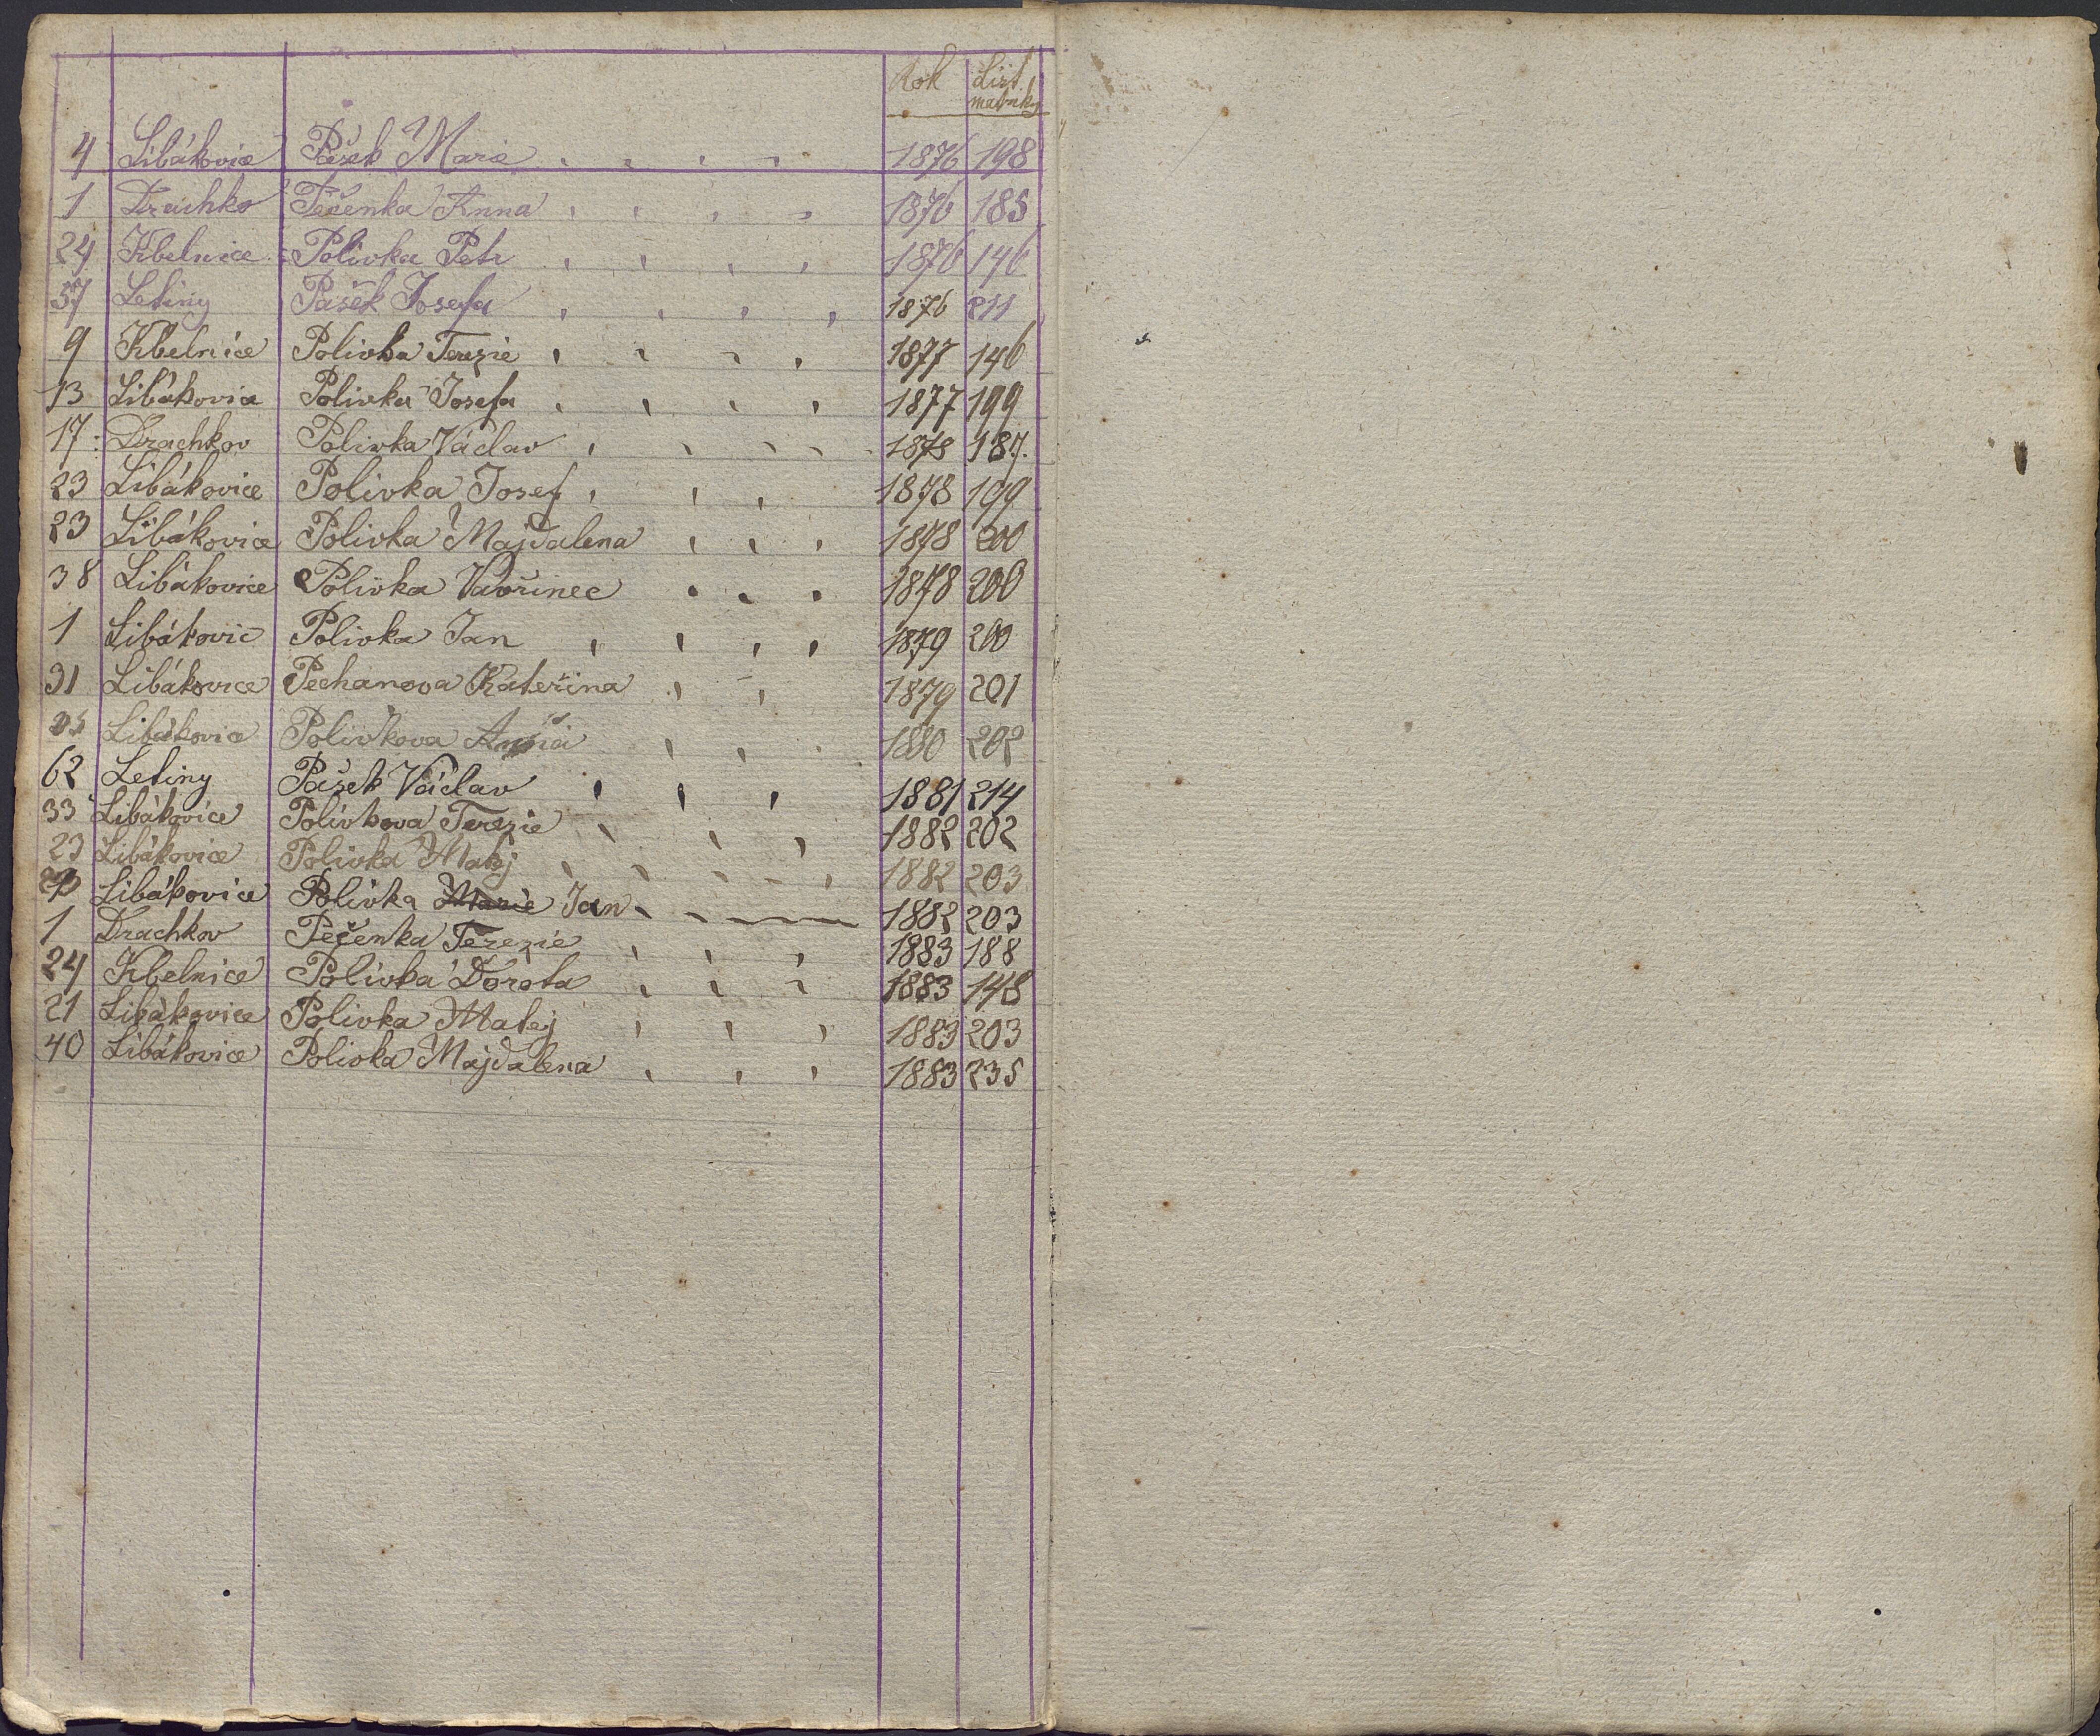 Rok List. matriky
4 Libákovice Pašek Marie 1876 198
1 Drachko Pečenka Anna 1876 185
24 Kbelnice Polivka Petr 1876 146
37 Letiny Pašek Josefa 1876 211
9 Kbelnice Polivka Terezie 1877 146
13 Libákovice Polivka Josefa 1877 199
17 Drachkov Polivka Václav 1878 187.
23 Libákovice Polivka Josef 1878 199
23 Libákovice Polivka Majdalena 1878 200
38 Libákovice Polivka Vavřinec 1878 200
1 Libákovic Polivka Jan 1879 200
31 Libákovice Pechanova Kateřina 1879 201
Libákovice Polivkova 1880 202
62 Letiny Pašek Václav 1881 214
33 Libákovice Polivkova Terezie 1882 202
23 Libákovice Polivka Matěj 1882 203
Libákovice Polivka Marie Jan 1882 203
1 Drachkov Pečenka Terezie 1883 188
24 Kbelnice Polivka Dorota 1883 148
21 Libákovice Polivka Matej 1883 203
40 Libákovice Polivka Majdalena 1883 235